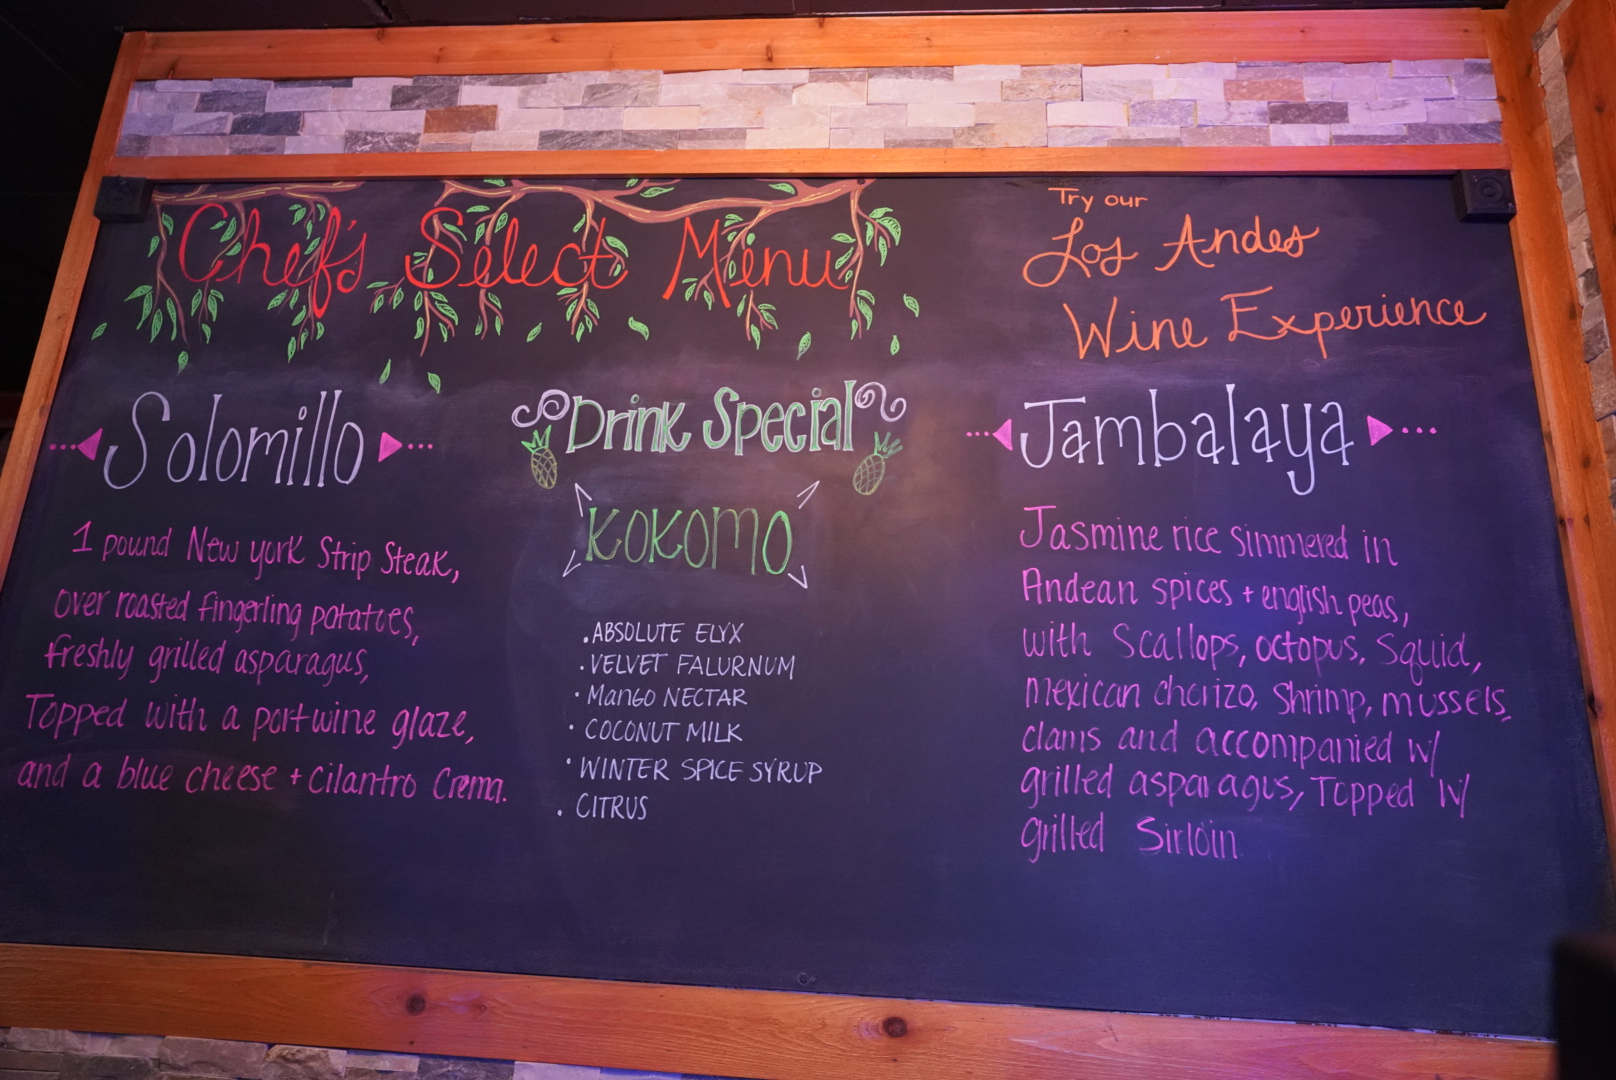 Chef's Select Menu
Try our
Los Andes
Wine Experience
Solomillo
1 pound New York Strip Steak,
over roasted fingerling potatoes,
freshly grilled asparagus,
Topped with a port wine glaze,
and a blue cheese + cilantro Crema.
Drink Special
KOKOMO
. ABSOLUTE ELYX
· VELVET FALURNUM
· MANGO NECTAR
· COCONUT MILK
· WINTER SPICE SYRUP
. CITRUS
Jambalaya
Jasmine rice simmered in
Andean spices + english peas,
with Scallops, octopus, Squid,
mexican chorizo, Shrimp, mussels,
clams and accompanied w/
grilled asparagus, Topped w/
grilled Sirloin